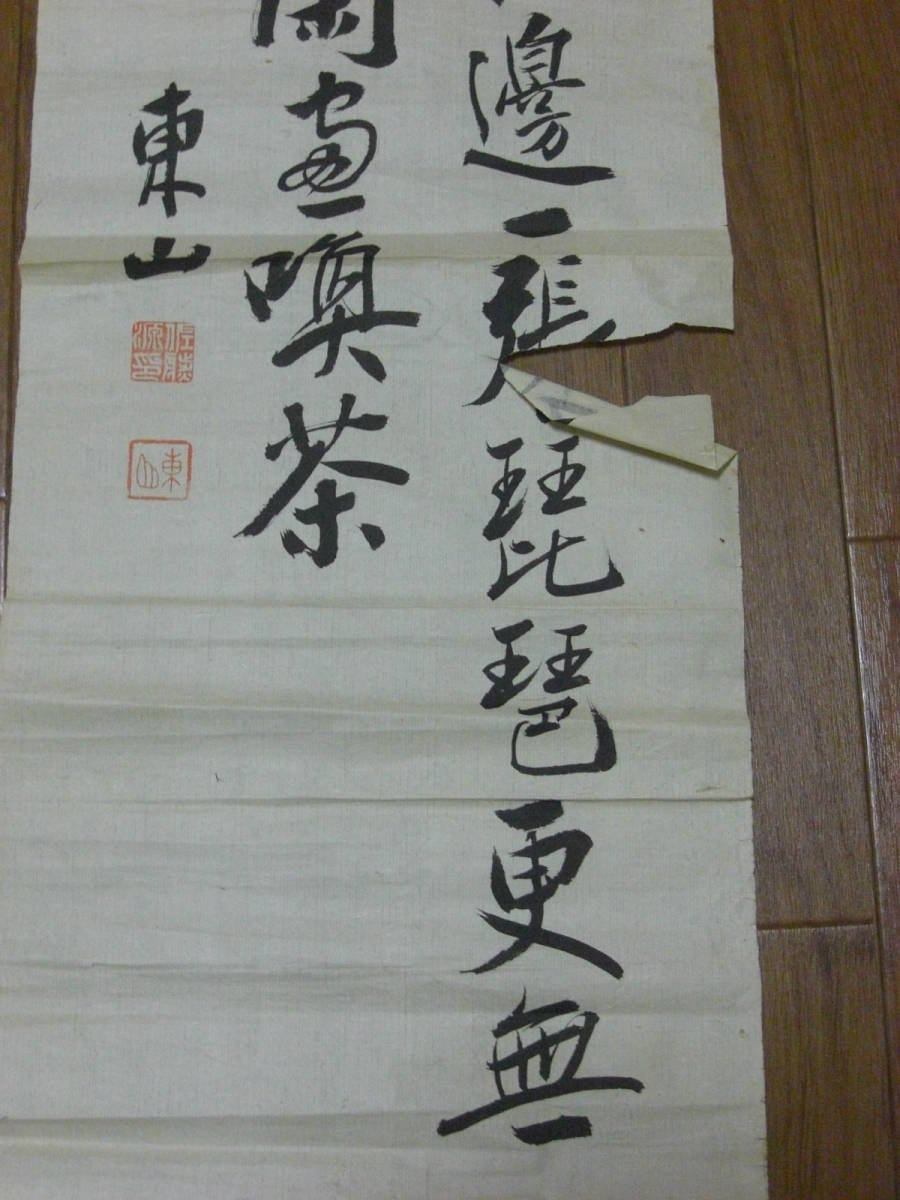 邊一張琵琶更無
窗喚茶
東山
東山